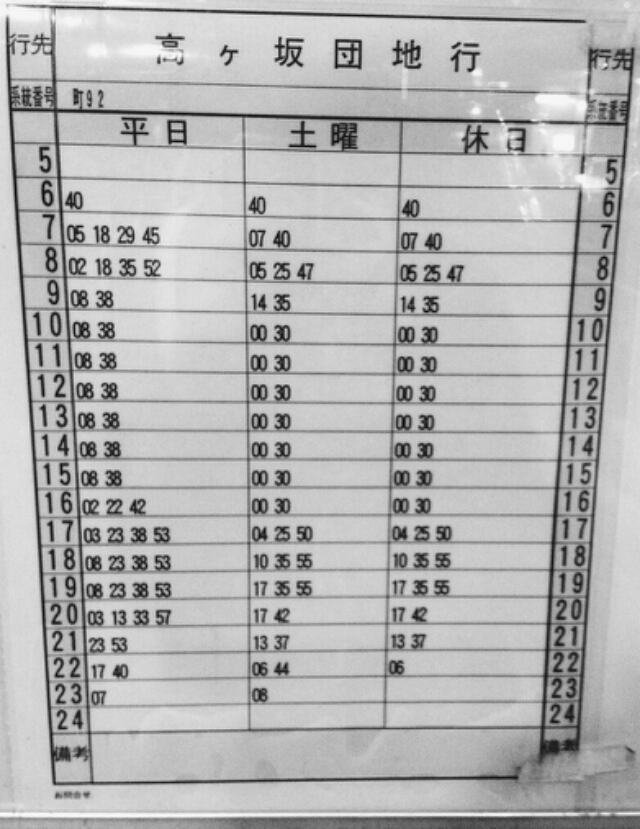 行先 高ヶ坂団地行 行先
系統番号 町92 系統番号
平日 土曜 休日
5 5
6 40 40 40 6
7 05 18 29 45 07 40 07 40 7
8 02 18 35 52 05 25 47 05 25 47 8
9 08 38 14 35 14 35 9
10 08 38 00 30 00 30 10
11 08 38 00 30 00 30 11
12 08 38 00 30 00 30 12
13 08 38 00 30 00 30 13
14 08 38 00 30 00 30 14
15 08 38 00 30 00 30 15
16 02 22 42 00 30 00 30 16
17 03 23 38 53 04 25 50 04 25 50 17
18 08 23 38 53 10 35 55 10 35 55 18
19 08 23 38 53 17 35 55 17 35 55 19
20 03 13 33 57 17 42 17 42 20
21 23 53 13 37 13 37 21
22 17 40 06 44 06 22
23 07 08 23
24 24
備考 備考
お問合せ